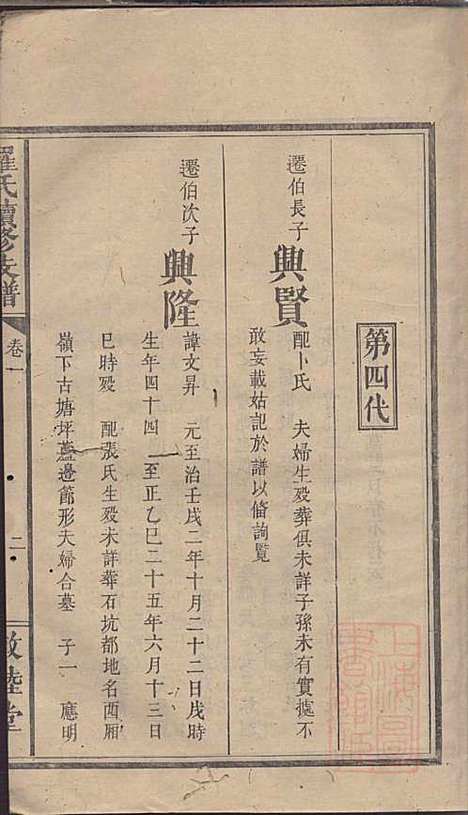 第四代
遷伯長子
興賢
配卜氏 夫婦生殁葬俱未詳子孫未有實據不
敢妄載姑記於譜以俻詢覧
遷伯次子
興隆
諱文昇 元至治壬戌二年十月二十二日戌時
生年四十四 至正乙巳二十五年六月十三日
巳時殁 配張氏生殁未詳葬石坑都地名西厢
嶺下古塘坪蘆邊節形夫婦合墓 子一 應明
羅氏續修支譜
卷一
二
敦睦堂
上海圖書館藏